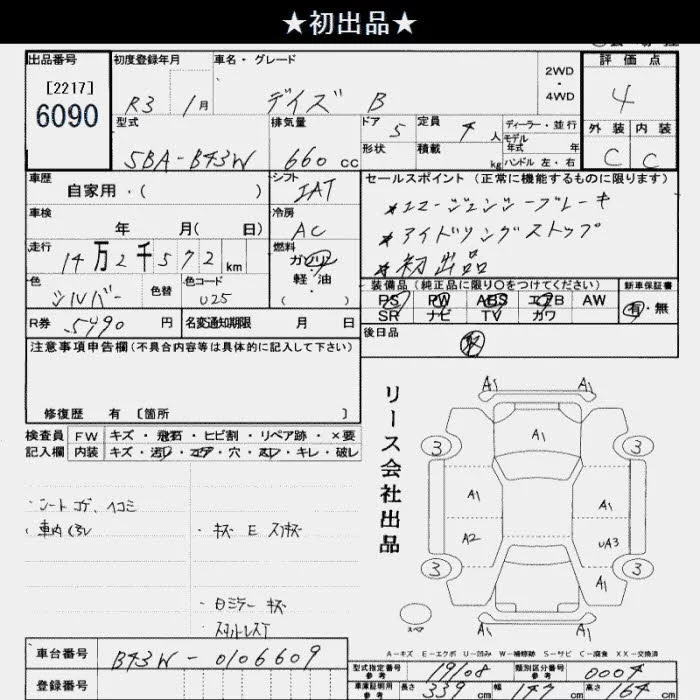 ★初出品★
出品番号
[2217]
6090
初度登録年月
R3 1月
車名・グレード
デイズ B
2WD
・
4WD
評価点
4
外装 内装
C C
型式
5BA-B43W
排気量
660 cc
ドア 5
形状
定員 4 人
積載 kg
ディーラー・並行
モデル
年式 年
ハンドル 左・右
車歴
自家用・( )
シフト
IAT
車検
年 月( 日)
冷房
AC
走行
14万2千572km
燃料
ガソリン
軽・油
色
シルバー
色替
色コード
U25
R券 5490円
名変通知期限 月 日
セールスポイント(正常に機能するものに限ります)
*エマージェンシーブレーキ
*アイドリングストップ
*初出品
装備品(純正品に限り○をつけてください)
PS PW ABS エアB AW
SR ナビ TV カワ
新車保証書
有・無
後日品
取
注意事項申告欄(不具合内容等は具体的に記入して下さい)
修復歴 有 [箇所 ]
検査員
記入欄
FW キズ・飛石・ヒビ割・リペア跡・×要
内装 キズ・汚レ・コゲ・穴・スレ・キレ・破レ
・シートコゲ、ヘコミ
・車内ヨゴレ
・キズ E スリキズ
・日ミラー キズ
リース会社出品
A1 A1
3 A1 3
A1 A1
A2 UA3
3 A1 3
A1 A1
スペア
A-キズ E-エクボ U-凹み W-補修跡 S-サビ C-腐食 XX-交換済
車台番号
B43W-0106609
登録番号
型式指定番号
参考
19108
類別区分番号
参考
0004
車庫証明用
参考
長さ 339cm 幅 147cm 高さ 164cm